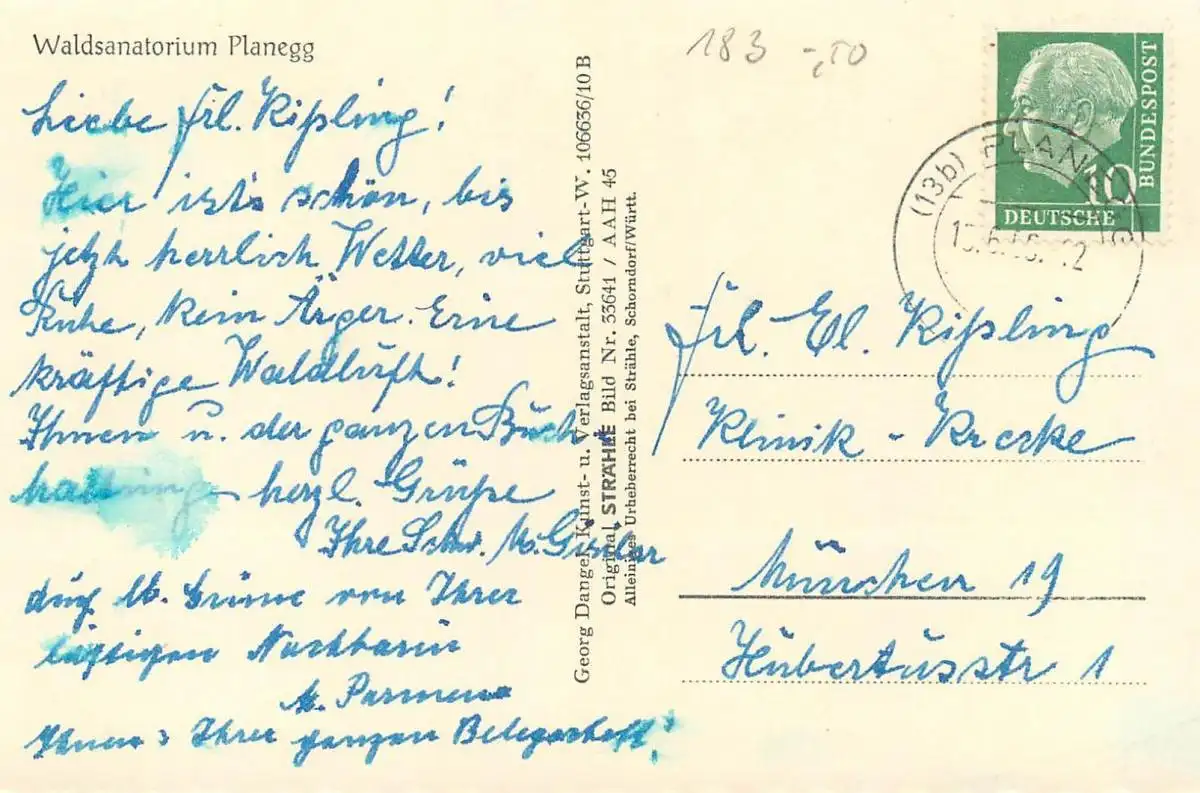 Waldsanatorium Planegg
Liebe Frl. Kißling!
Hier ist's schön, bis
jetzt herrlich Wetter, viel
Ruhe, kein Ärger. Eine
kräftige Waldluft!
Ihnen u. der ganzen Buch
haltung herzl. Grüße
Ihre Schw. M.
von Ihrer
Nachbarin
Ihrer ganzen Belegschaft!
Georg Dangel, Kunst- u. Verlagsanstalt, Stuttgart-W. 106636/10 B
Original STRÄHLE Bild Nr. 33641 / AAH 45
Alleiniges Urheberrecht bei Strähle, Schorndorf/Württ.
183 -,50
BUNDESPOST
10
DEUTSCHE
(13b) PLANEGG
Frl. El. Kißling
Klinik - Krecke
München 19
Hubertusstr 1